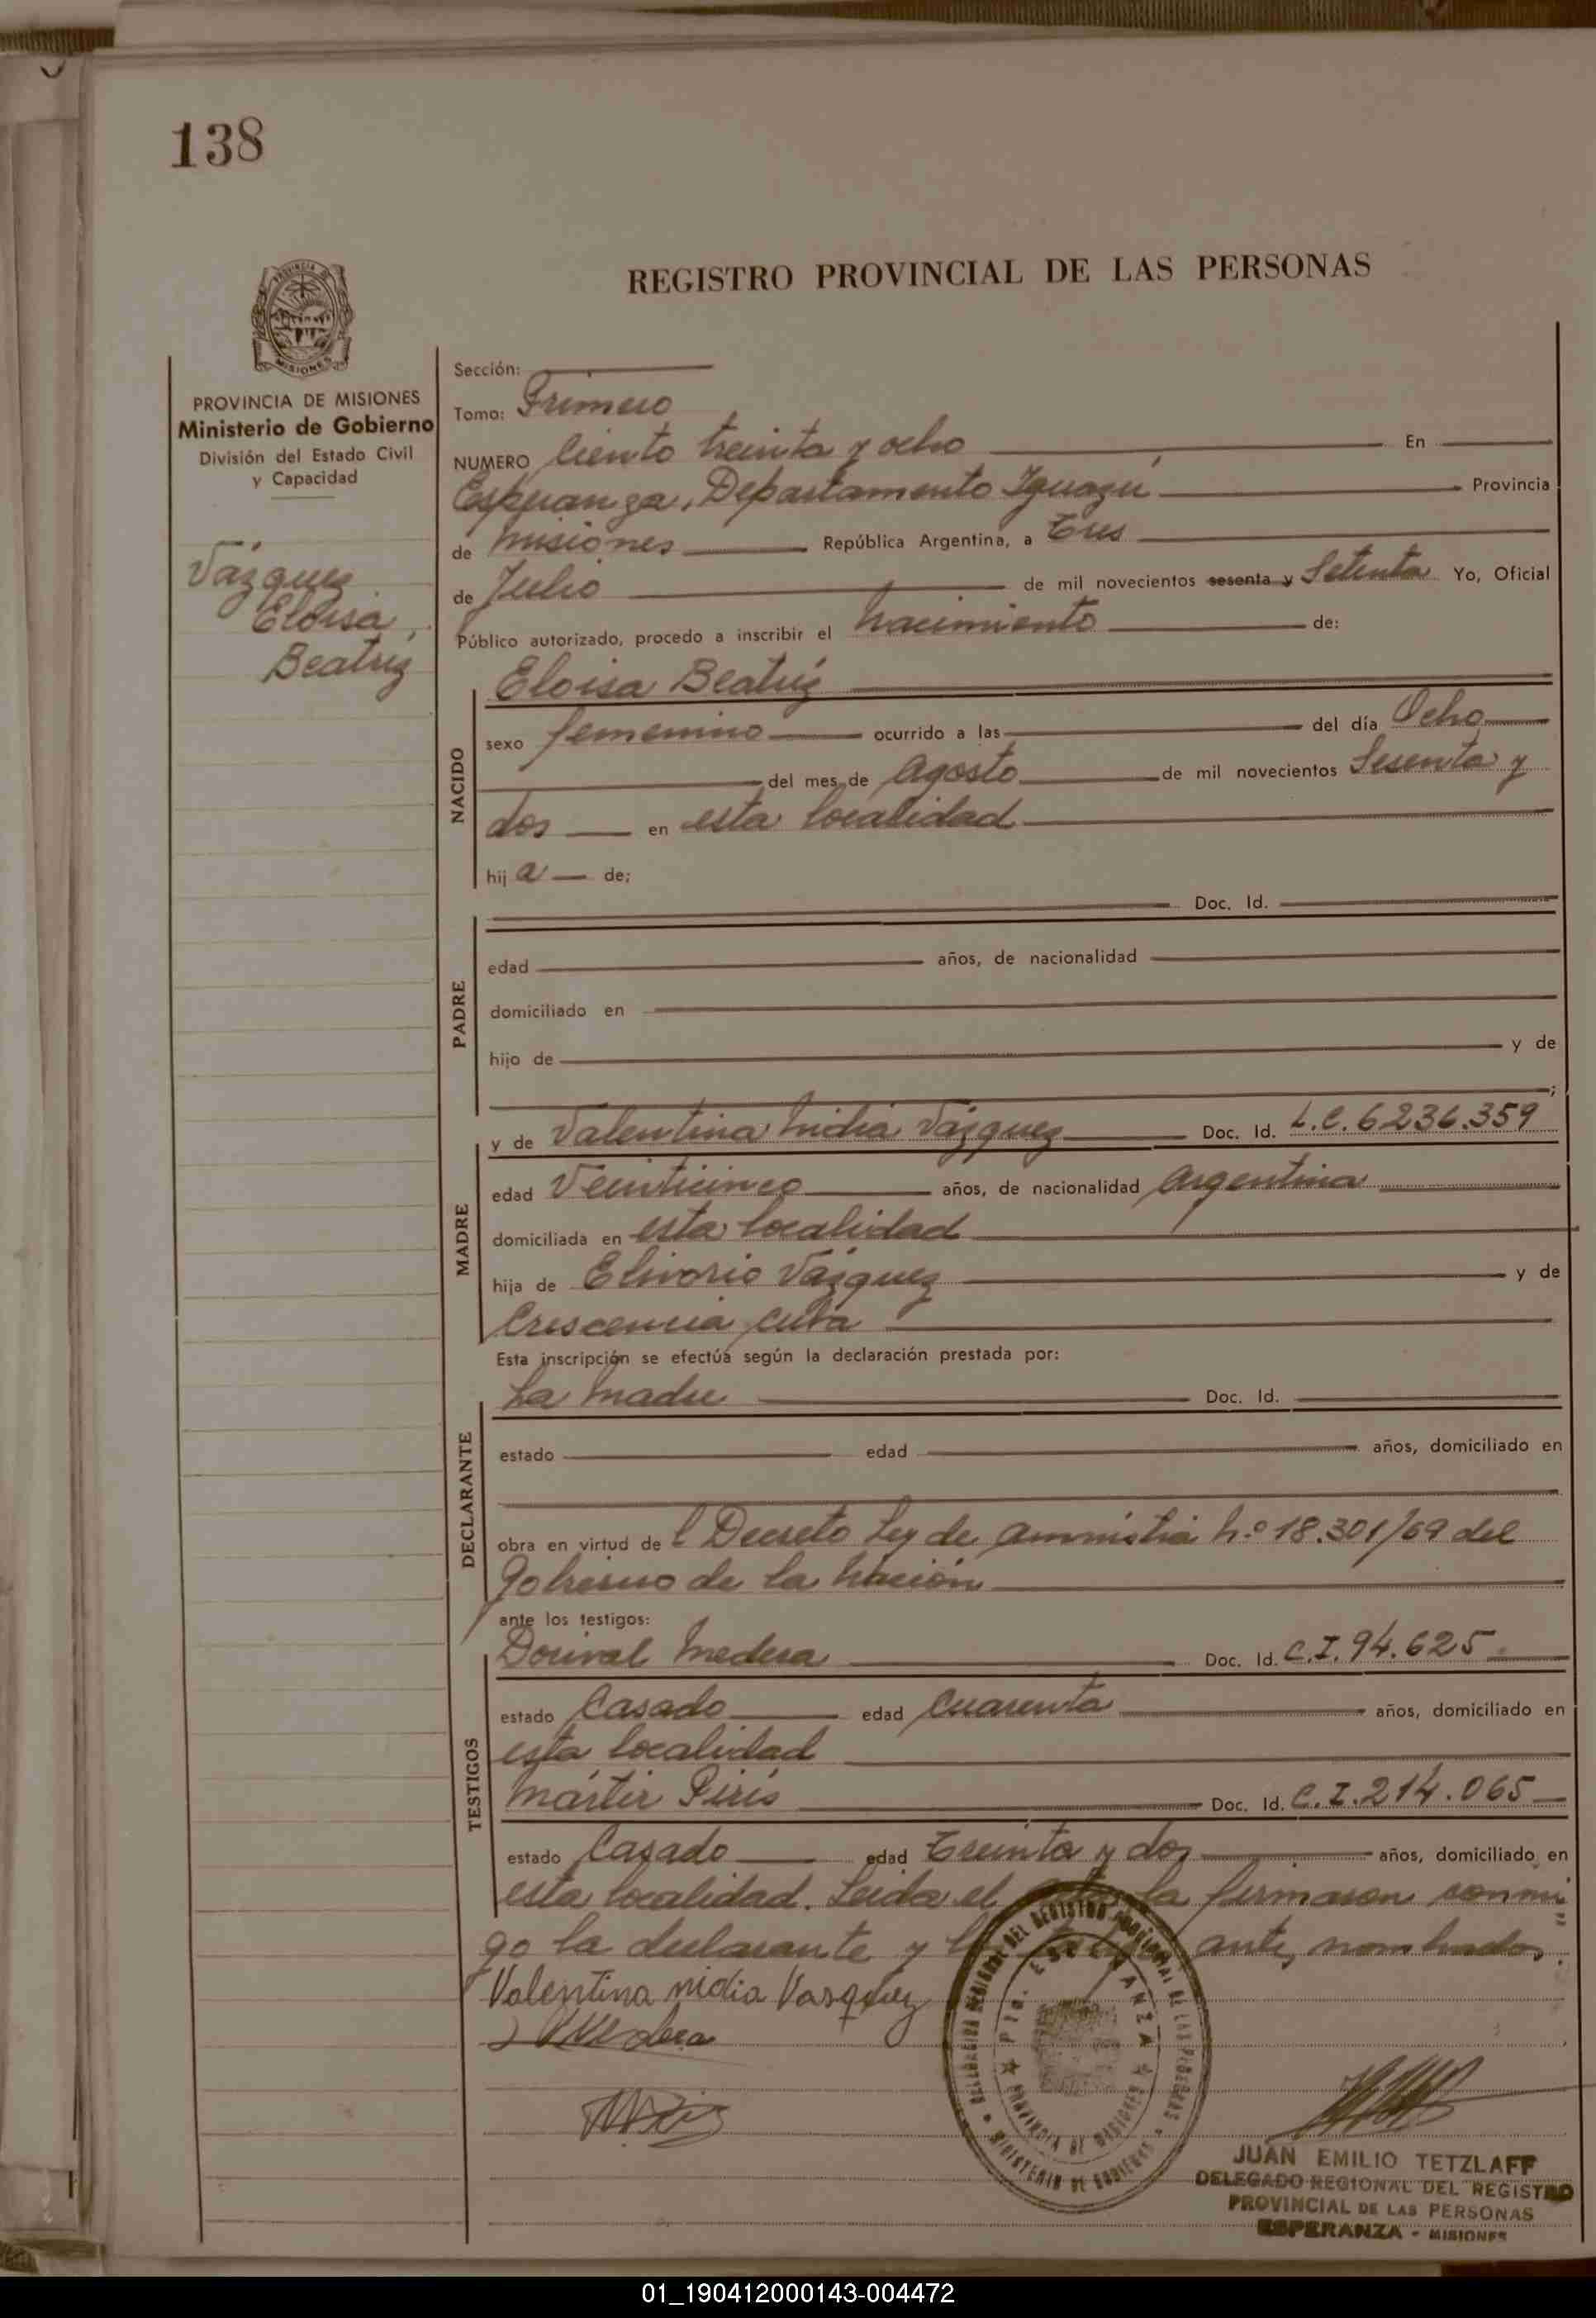 138
REGISTRO PROVINCIAL DE LAS PERSONAS
PROVINCIA DE MISIONES
Ministerio de Gobierno
División del Estado Civil
y Capacidad
Vázquez
Eloisa
Beatriz
Sección:
Tomo: Primero
NUMERO Ciento treinta y ocho En
Esperanza, Departamento Iguazú Provincia
de Misiones República Argentina, a Tres
de Julio de mil novecientos sesenta y Setenta Yo, Oficial
Público autorizado, procedo a inscribir el Nacimiento de:
NACIDO
Eloisa Beatriz
sexo femenino ocurrido a las del día Ocho
del mes de Agosto de mil novecientos Sesenta y
dos en esta localidad
hij a de;
PADRE
Doc. Id.
edad años, de nacionalidad
domiciliado en
hijo de y de
;
MADRE
y de Valentina Nidia Vázquez Doc. Id. L.C. 6236.359
edad Veinticinco años, de nacionalidad Argentina
domiciliada en esta localidad
hija de Elivorio Vázquez y de
Crescencia
Esta inscripción se efectúa según la declaración prestada por:
DECLARANTE
La Madre Doc. Id.
estado edad años, domiciliado en
obra en virtud de l Decreto Ley de Amnistia N.º 18.301/69 del
Gobierno de la Nación
ante los testigos:
TESTIGOS
Dorival Medera Doc. Id. C.I. 94.625
estado Casado edad Cuarenta años, domiciliado en
esta localidad
Mártir Piris Doc. Id. C.I. 214.065
estado Casado edad Treinta y dos años, domiciliado en
esta localidad. Leida el Acta la firmaron conmi
go la declarante y los antes nombrados.
Valentina nidia Vasquez
DELEGACION REGIONAL DEL REGISTRO PROVINCIAL DE LAS PERSONAS
MINISTERIO DE GOBIERNO
Pto. ESPERANZA
PROVINCIA DE MISIONES
JUAN EMILIO TETZLAFF
DELEGADO REGIONAL DEL REGISTRO
PROVINCIAL DE LAS PERSONAS
ESPERANZA - MISIONES
01_190412000143-004472